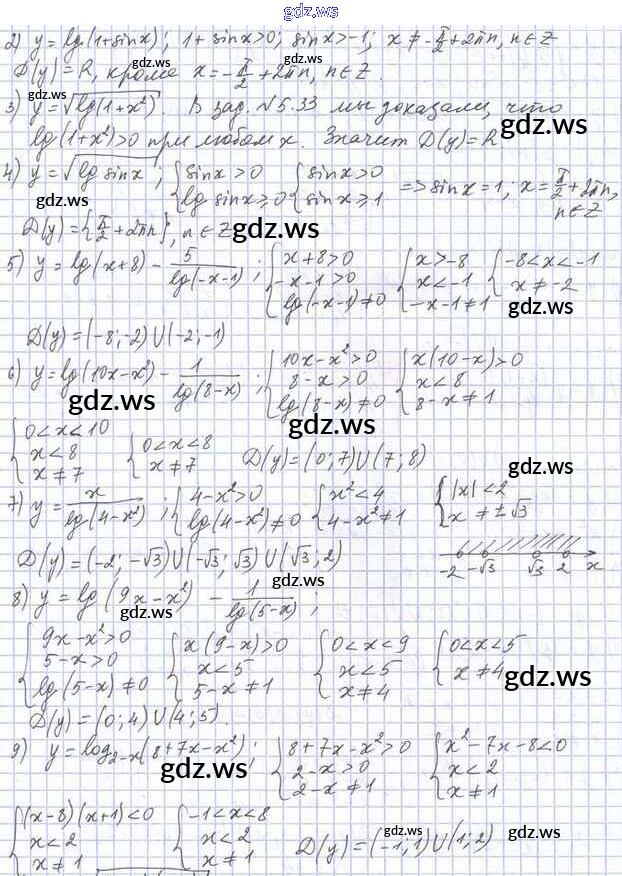 gdz.ws
2) y = lg(1+sinx); 1+sinx>0; sinx>-1; x ≠ -π/2+2πn, n∈Z
D(y)=R, кроме x = -π/2 + 2πn, n∈Z.
3) y = √(lg(1+x²)). В зад. №5.33 мы доказали, что
lg(1+x²)>0 при любом x. Значит D(y)=R
gdz.ws
4) y = √(lg sinx); { sinx>0 lg sinx ≥ 0 { sinx>0 sinx ≥ 1 => sinx=1; x = π/2+2πn, n∈Z
gdz.ws
D(y)={π/2+2πn}, n∈Z
gdz.ws
5) y = lg(x+8) - 5/lg(-x-1); { x+8>0 -x-1>0 lg(-x-1)≠0 { x>-8 x<-1 -x-1≠1 { -8<x<-1 x≠-2
gdz.ws
D(y)=(-8;-2)U(-2;-1)
6) y=lg(10x-x²) - 1/lg(8-x); { 10x-x²>0 8-x>0 lg(8-x)≠0 { x(10-x)>0 x<8 8-x≠1
gdz.ws
{ 0<x<10 x<8 x≠7 { 0<x<8 x≠7 D(y)=(0;7)U(7;8)
gdz.ws
7) y = x/lg(4-x²); { 4-x²>0 lg(4-x²)≠0 { x²<4 4-x²≠1 { |x|<2 x≠±√3
gdz.ws
D(y)=(-2;-√3)U(-√3;√3)U(√3;2)
-2 -√3 √3 2 x
gdz.ws
8) y = lg(9x-x²) - 1/lg(5-x);
gdz.ws
{ 9x-x²>0 5-x>0 lg(5-x)≠0 { x(9-x)>0 x<5 5-x≠1 { 0<x<9 x<5 x≠4 { 0<x<5 x≠4
gdz.ws
D(y)=(0;4)U(4;5).
9) y=log₂₋ₓ(8+7x-x²); { 8+7x-x²>0 2-x>0 2-x≠1 { x²-7x-8<0 x<2 x≠1
gdz.ws
{ (x-8)(x+1)<0 x<2 x≠1 { -1<x<8 x<2 x≠1 D(y)=(-1;1)U(1;2)
gdz.ws
gdz.ws